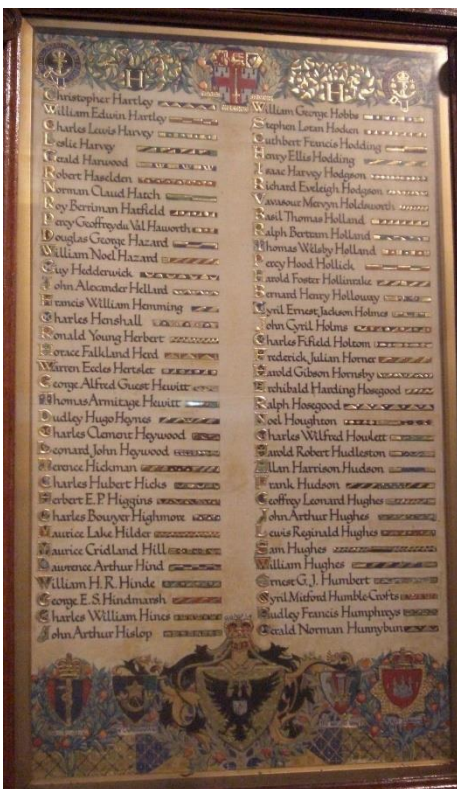 H
H
Christopher Hartley
William Edwin Hartley
Charles Lewis Harvey
Leslie Harvey
Gerald Harwood
Robert Haselden
Norman Claud Hatch
Roy Berriman Hatfield
Percy Geoffrey du Val Haworth
Douglas George Hazard
William Noel Hazard
Guy Hedderwick
John Alexander Hellard
Francis William Hemming
Charles Henshall
Ronald Young Herbert
Horace Falkland Herd
Warren Eccles Hertslet
George Alfred Guest Hewitt
Thomas Armitage Hewitt
Dudley Hugo Heynes
Charles Clement Heywood
Leonard John Heywood
Terence Hickman
Charles Hubert Hicks
Herbert E. P. Higgins
Charles Bouyer Highmore
Maurice Lake Hilder
Maurice Gridland Hill
Lawrence Arthur Hind
William H. R. Hinde
George E. S. Hindmarsh
Charles William Hines
John Arthur Hislop
William George Hobbs
Stephen Loran Hocken
Cuthbert Francis Hodding
Henry Ellis Hodding
Isaac Harvey Hodgson
Richard Eveleigh Hodgson
Vavasour Mervyn Holdsworth
Basil Thomas Holland
Ralph Bertram Holland
Thomas Welsby Holland
Percy Hood Hollick
Harold Foster Hollinrake
Bernard Henry Holloway
Cyril Ernest Jackson Holmes
John Cyril Holms
Charles Fifield Holtom
Frederick Julian Horner
Harold Gibson Hornsby
Archibald Harding Hosegood
Ralph Hosegood
Noel Houghton
Charles Wilfred Howlett
Harold Robert Hudleston
Allan Harrison Hudson
Frank Hudson
Geoffrey Leonard Hughes
John Arthur Hughes
Lewis Reginald Hughes
Sam Hughes
William Hughes
Ernest G. J. Humbert
Cyril Mitford Humble-Crofts
Dudley Francis Humphreys
Gerald Norman Hunnybun